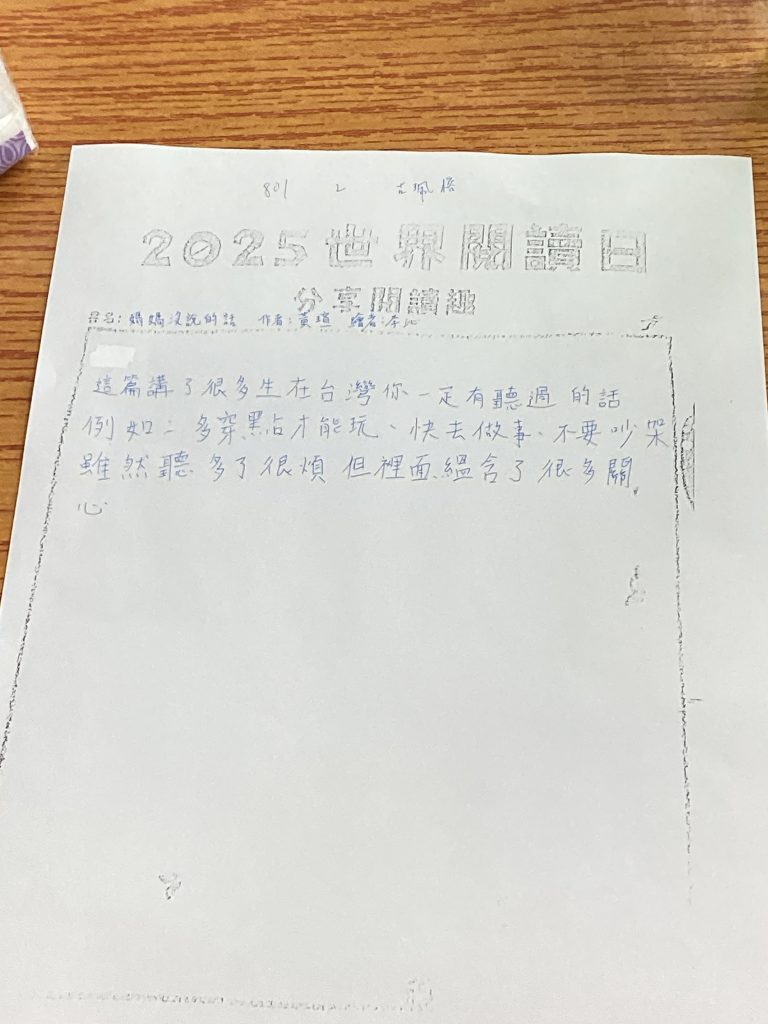 801 2 古珮
2025世界閱讀日
分享閱讀趣
書名:媽媽沒說的話 作者:黃瑄 繪者:李沁
這篇講了很多生在台灣你一定有聽過的話
例如:多穿點才能玩、快去做事、不要吵架
雖然聽多了很煩但裡面縕含了很多關
心